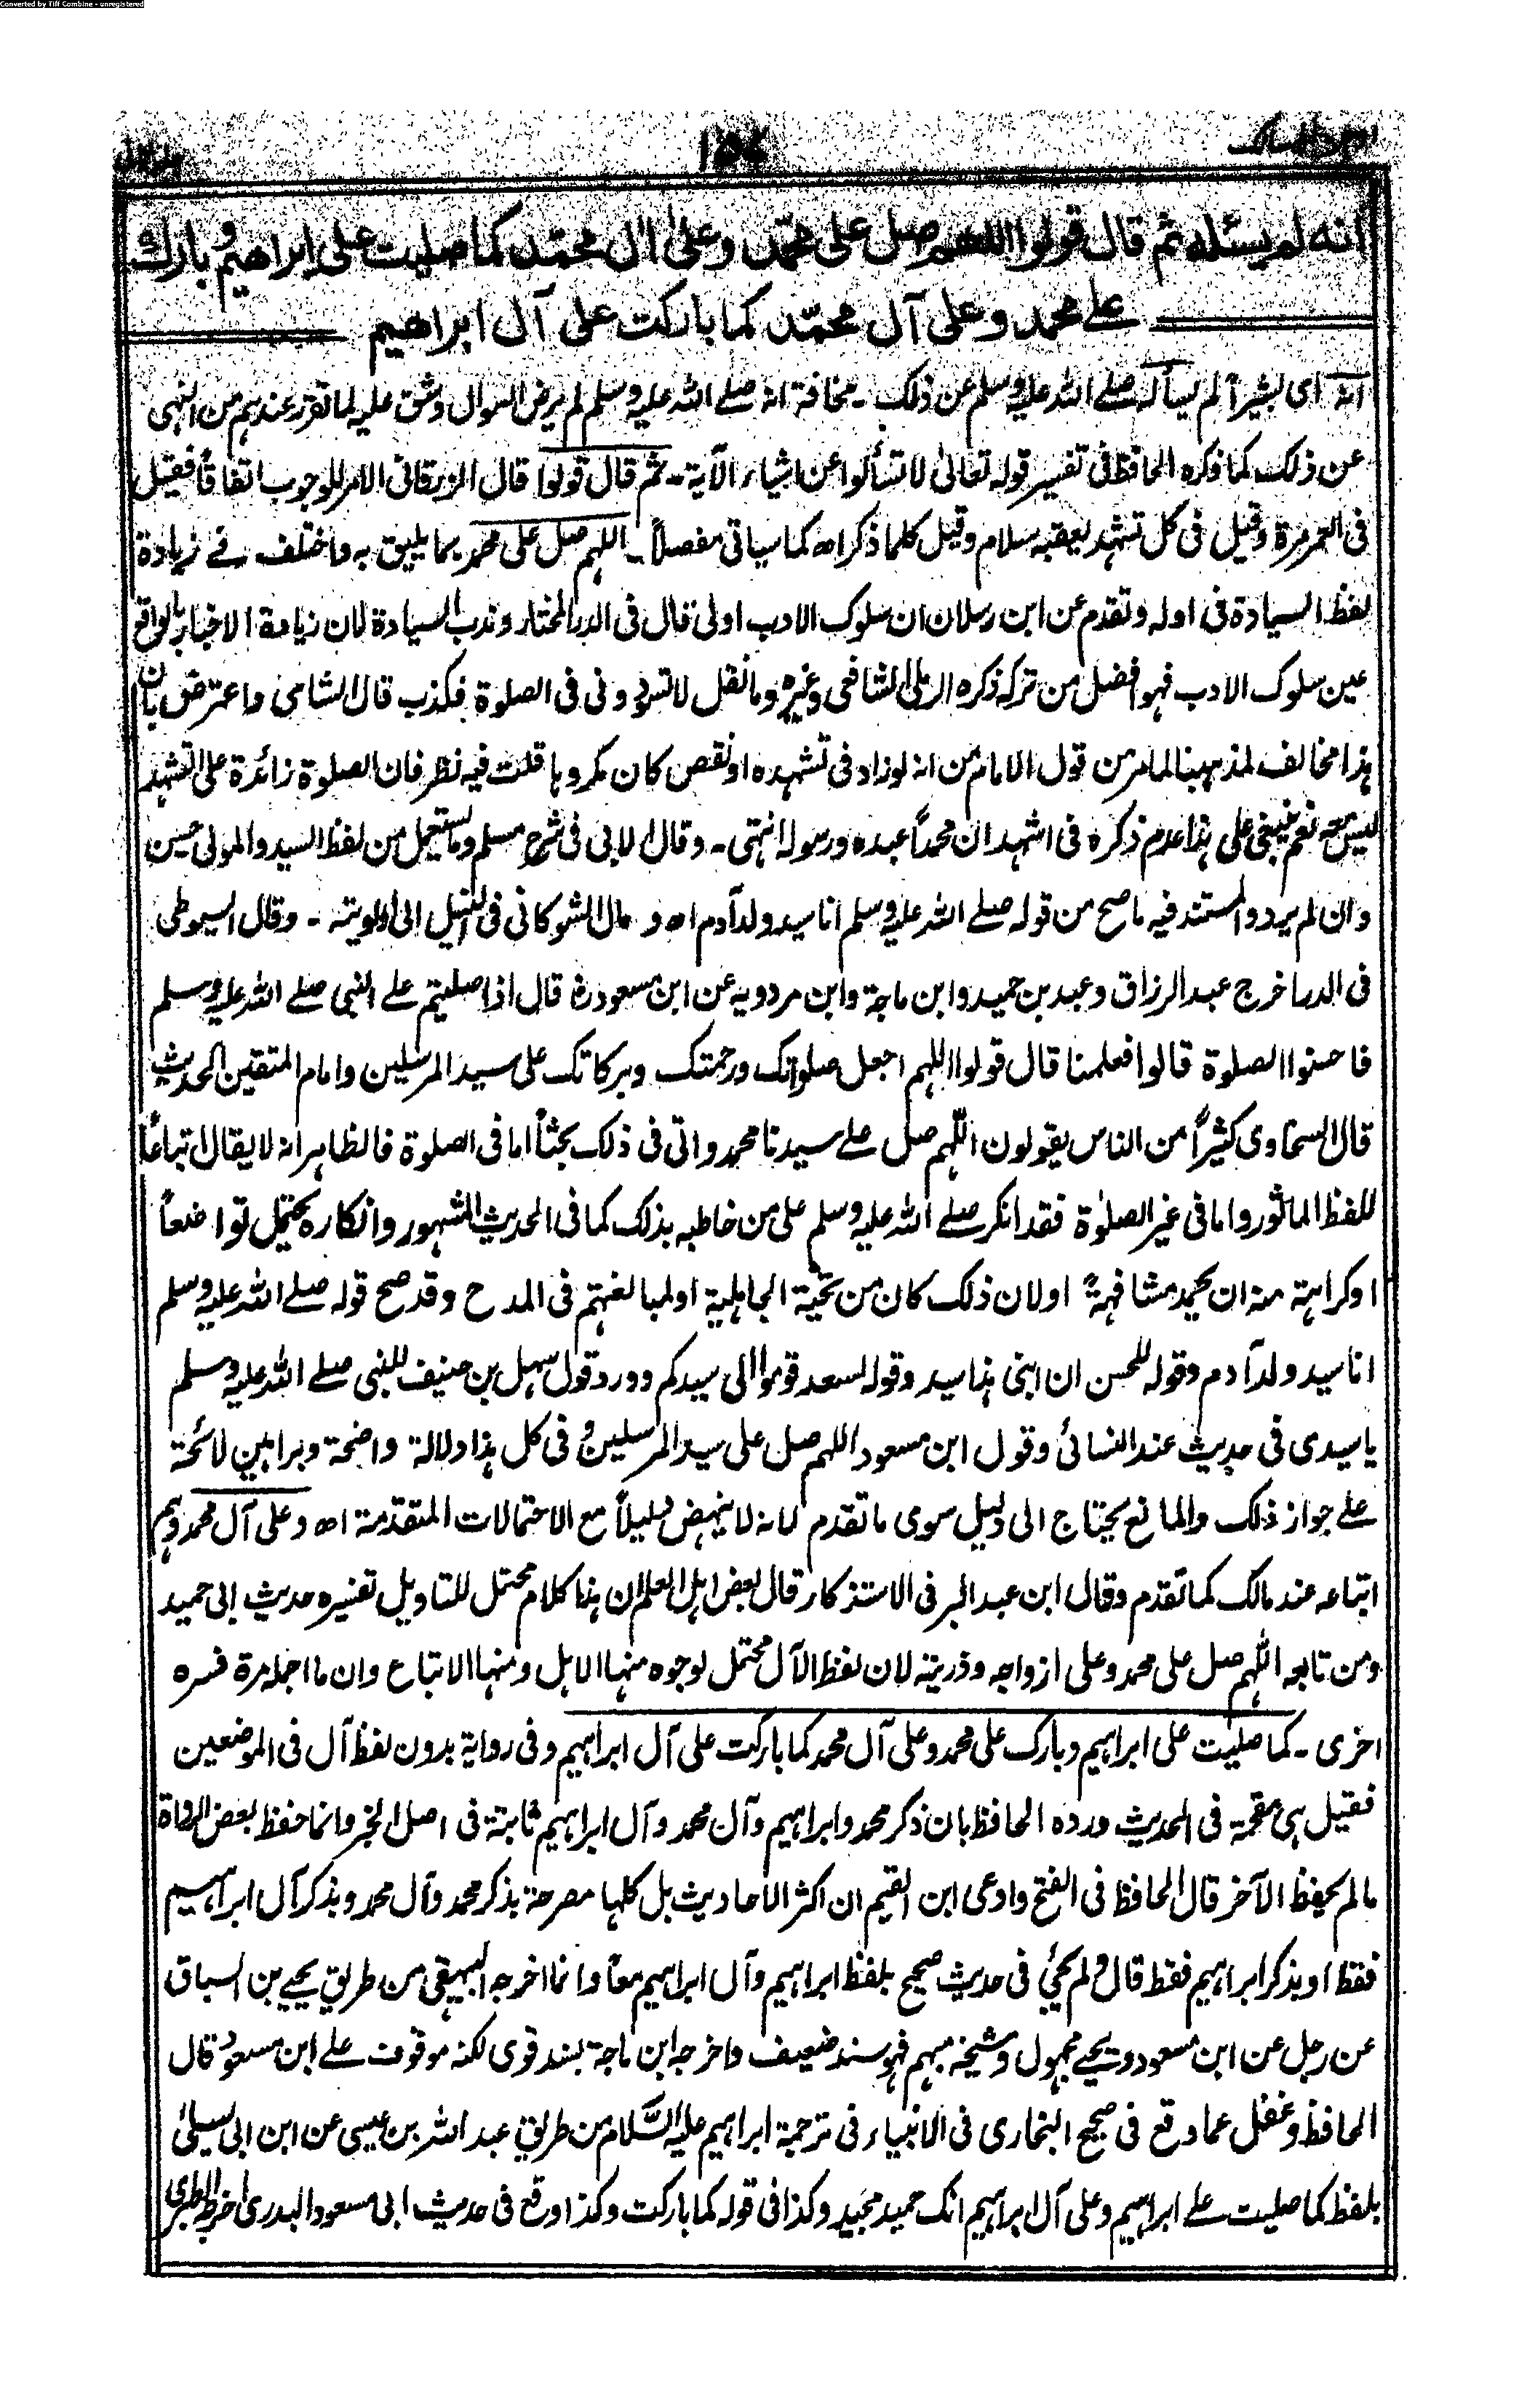 Converted by Tiff Combine - unregistered
اوجز المسالک ١٥٤
انه لم يسئله ثم قال قولوا اللهم صل على محمد وعلى ال محمد كما صليت على ابراهيم وبارك
على محمد وعلى آل محمد كما باركت على آل ابراهيم
انه اى بشيراً لم يسأله صلے الله عليه وسلم عن ذلك ـ مخافة انه صلے الله عليه وسلم لم يرض السوال وشق عليه لما تقرر عندهم من النهى
عن ذلك كما ذكره الحافظ فى تفسير قوله تعالىٰ لا تسألوا عن اشياء الآية ـ ثم قال قولوا قال الزرقانى الامر للوجوب اتفاقاً فقيل
فى العمر مرة وقيل فى كل تشهد يعقبه سلام وقيل كلما ذكر اھ كما سياتى مفصلاً ـ اللهم صل على محمد بما يليق به واختلف فے زيادة
لفظ السيادة فى اوله وتقدم عن ابن رسلان ان سلوك الادب اولىٰ قال فى الدر المختار وندب السيادة لان زيادة الاخبار بالواقع
عين سلوك الادب فهو افضل من تركه ذكره الرملى الشافعى وغيره وما نقل لا تسودونى فى الصلوة فكذب قال الشامى واعترض بان
هذا مخالف لمذهبنا لما مر من قول الامام من انه لو زاد فى تشهده او نقص كان مكروها قلت فيه نظر فان الصلوة زائدة على التشهد
ليس معه نعم ينبغى على هذا عدم ذكره فى اشهد ان محمداً عبده ورسوله انتهى ـ وقال الابى فى شرح مسلم وما يستعمل من لفظ السيد والمولى حسن
وان لم يرد والمستند فيه ما صح من قوله صلے الله عليه وسلم انا سيد ولد آدم اھ ومال الشوكانى فى النيل الى اولويته ـ وقال السيوطى
فى الدر اخرج عبد الرزاق وعبد بن حميد وابن ماجة وابن مردويه عن ابن مسعود قال اذا صليتم على النبى صلے الله عليه وسلم
فاحسنوا الصلوة قالوا فعلمنا قال قولوا اللهم اجعل صلواتك ورحمتك وبركاتك على سيد المرسلين وامام المتقين الحديث
قال السخاوى كثيراً من الناس يقولون اللهم صل علے سيدنا محمد واتى فى ذلك بحثاً اما فى الصلوة فالظاهر انه لا يقال اتباعاً
للفظ الماثور واما فى غير الصلوٰة فقد انكر صلے الله عليه وسلم على من خاطبه بذلك كما فى الحديث المشهور وانكاره يحتمل تواضعاً
او كراهة منه ان يحمد مشافهةً او لان ذلك كان من تحية الجاهلية او لمبالغتهم فى المدح وقد صح قوله صلے الله عليه وسلم
انا سيد ولد آدم وقوله للحسن ان ابنى هذا سيد وقوله لسعد قوموا الى سيدكم وورد قول سهل بن حنيف للنبى صلے الله عليه وسلم
يا سيدى فى حديث عند النسائى وقول ابن مسعود اللهم صل على سيد المرسلين وفى كل هذا دلالة واضحة وبراهين لائحة
علے جواز ذلك والمانع يحتاج الى دليل سوى ما تقدم لانه لا ينهض دليلاً مع الاحتمالات المتقدمة اھ وعلى آل محمد وهم
اتباعه عند مالك كما تقدم وقال ابن عبد البر فى الاستذكار قال بعض اهل العلم ان هذا كلام محتمل للتاويل تفسيره حديث ابى حميد
ومن تابعه اللهم صل على محمد وعلى ازواجه وذريته لان لفظ الآل محتمل لوجوه منها الاهل ومنها الاتباع وان ما اجمله مرة فسره
اخرى ـ كما صليت على ابراهيم وبارك على محمد وعلى آل محمد كما باركت على آل ابراهيم وفى رواية بدون لفظ آل فى الموضعين
فقيل هى مقحمة فى الحديث ورده الحافظ بان ذكر محمد وابراهيم وآل محمد وآل ابراهيم ثابتة فى اصل الخبر وانما حفظ بعض الرواة
ما لم يحفظ الآخر قال الحافظ فى الفتح وادعى ابن القيم ان اكثر الاحاديث بل كلها مصرحة بذكر محمد وآل محمد وبذكر آل ابراهيم
فقط او بذكر ابراهيم فقط قال ولم يجئ فى حديث صحيح بلفظ ابراهيم وآل ابراهيم معاً وانما اخرجه البيهقى من طريق يحيے بن السباق
عن رجل عن ابن مسعود ويحيے مجهول وشيخه مبهم فهو سند ضعيف واخرجه ابن ماجة بسند قوى لكنه موقوف علے ابن مسعود قال
الحافظ وغفل عما وقع فى صحيح البخارى فى الانبياء فى ترجمة ابراهيم عليه السَّلام من طريق عبد الله بن عيسى عن ابن ابى ليلىٰ
بلفظ كما صليت علے ابراهيم وعلى آل ابراهيم انك حميد مجيد وكذا فى قوله كما باركت وكذا وقع فى حديث ابى مسعود البدرى اخرجه الطبرى